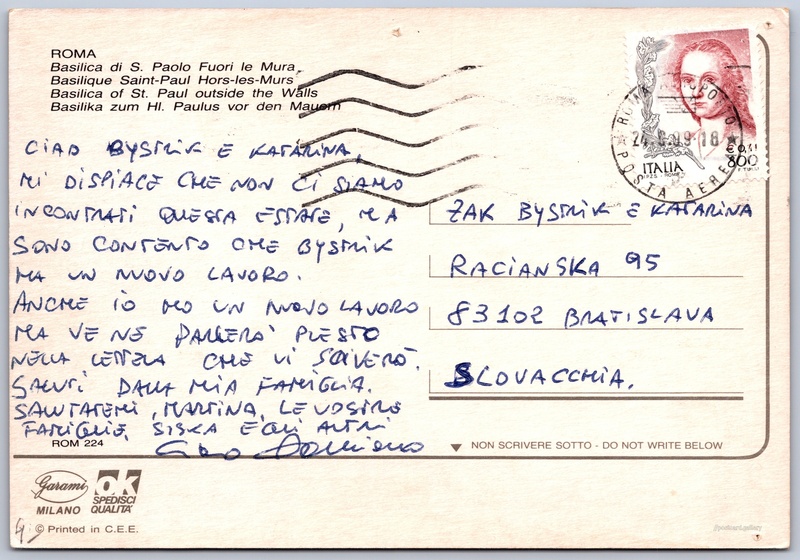 ROMA
Basilica di S. Paolo Fuori le Mura
Basilique Saint-Paul Hors-les-Murs
Basilica of St. Paul outside the Walls
Basilika zum Hl. Paulus vor den Mauern
CIAO BYSTRIK E KATARINA,
MI DISPIACE CHE NON CI SIAMO
INCONTRATI QUESTA ESTATE, MA
SONO CONTENTO CHE BYSTRIK
HA UN NUOVO LAVORO.
ANCHE IO HO UN NUOVO LAVORO
MA VE NE PARLERO' PRESTO
NELLA LETTERA CHE VI SCRIVERO'.
SALUTI DALLA MIA FAMIGLIA.
SALUTATEMI, MARTINA, LE VOSTRE
FAMIGLIE, SISKA E GLI ALTRI
Ciao
ROM 224
ROMA
POSTA AEREA
24.8.99-18
ITALIA
€ 0,41
800
ZAK BYSTRIK E KATARINA
RACIANSKA 95
83102 BRATISLAVA
SLOVACCHIA.
NON SCRIVERE SOTTO - DO NOT WRITE BELOW
Garami
MILANO
ok
SPEDISCI
QUALITA'
© Printed in C.E.E.